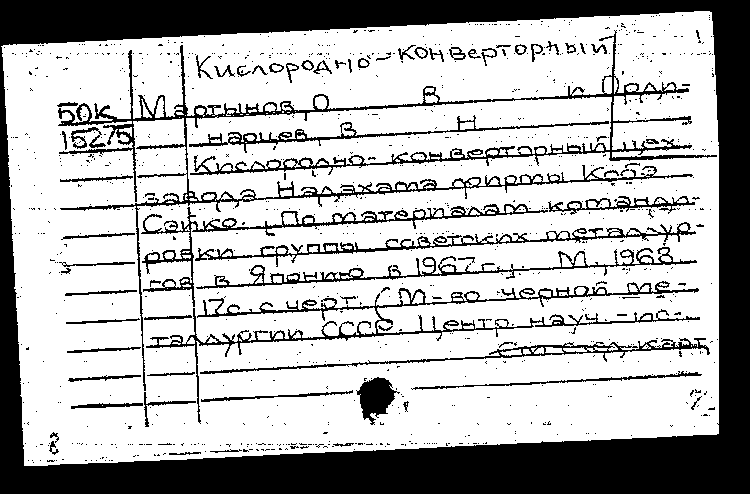 Кислородно-конверторный
БОК Мартынов, О В и Орди-
15275 нарцев, В Н
Кислородно-конверторный цех
завода Надахама фирмы Кобэ
Сэйко. [По материалам команди-
ровки группы советских металлур-
гов в Японию в 1967 г.]. М., 1968
17с. с черт. (М-во черной ме-
таллургии СССР. Центр. науч.-ис-
См след карт